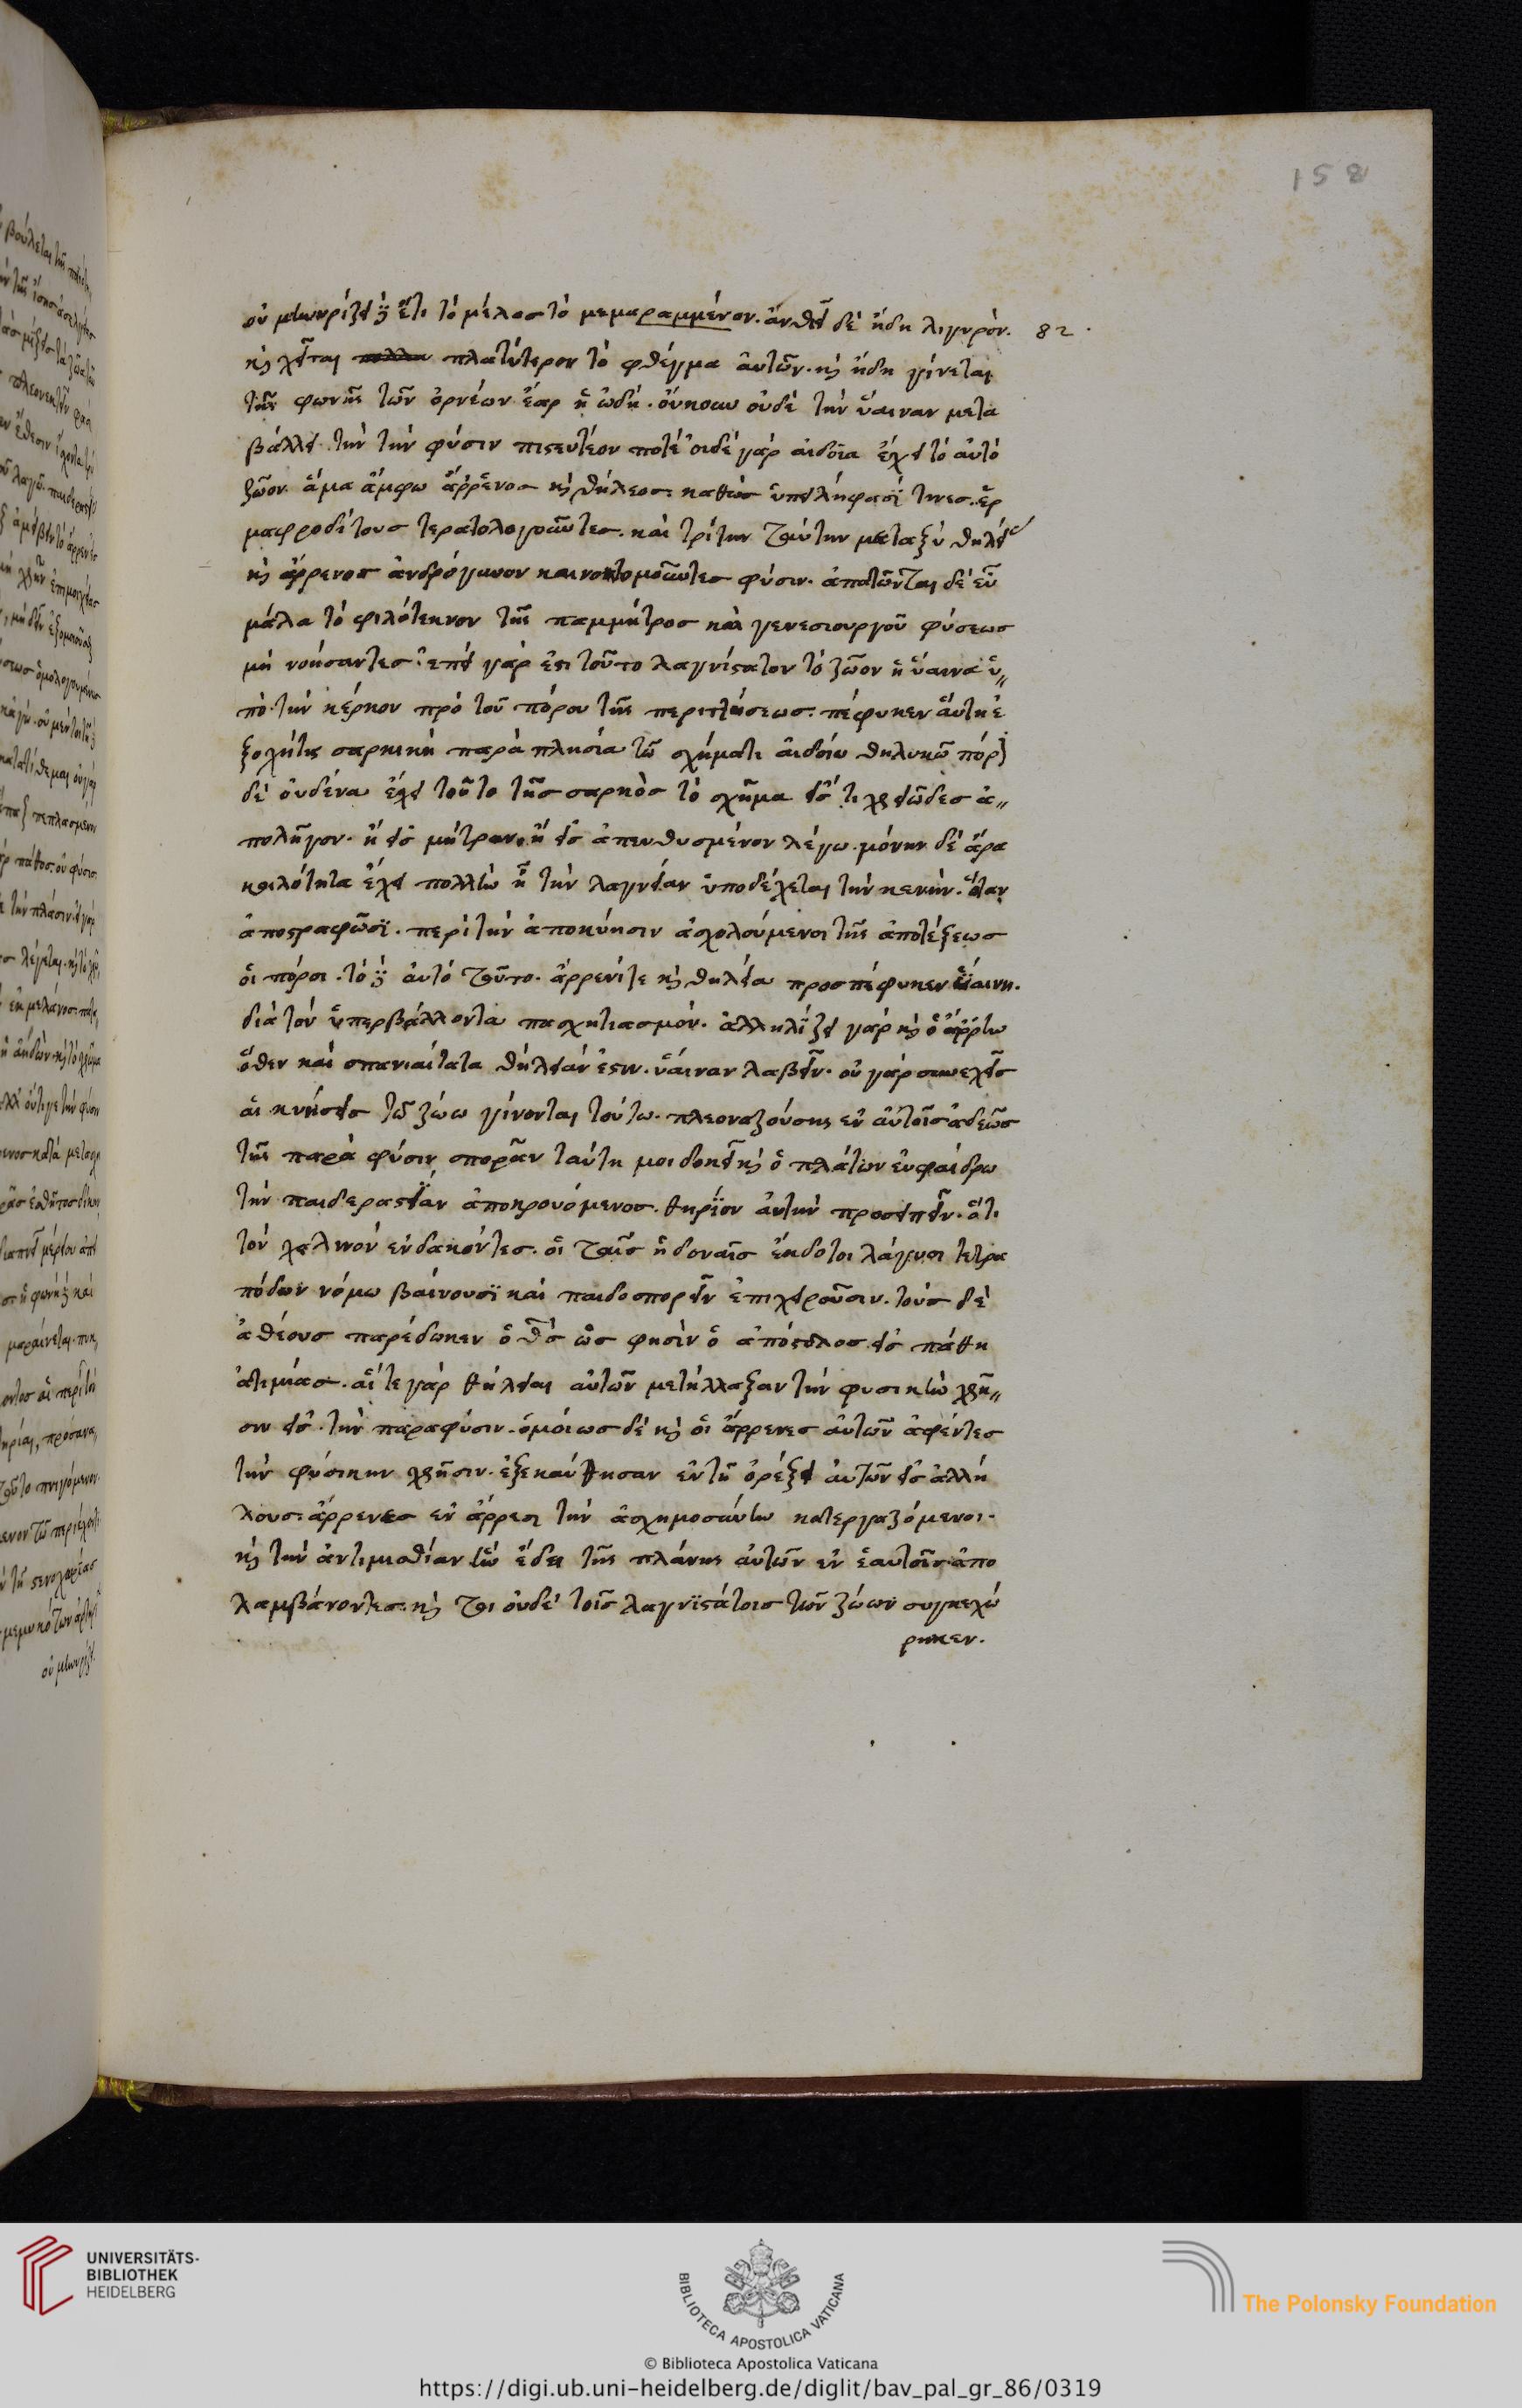 158
οὐ μινυρίζει δ' ἔτι τὸ μέλος τὸ μεμαραμμένον. ἀνθεῖ δὲ ἤδη λιγυρὸν. 82.
καὶ χεῖται πλατύτερον τὸ φθέγμα αὐτῶν. καὶ ἤδη γίνεται
τῆς φωνῆς τῶν ὀρνέων ἔαρ ἡ ὠδή. οὔκουν οὐδὲ τὴν ὕαιναν μετα
βάλλει τὴν τὴν φύσιν πιστευτέον ποτέ οὐδὲ γὰρ αἰδοῖα ἔχει τὸ αὐτὸ
ζῶον ἅμα ἄμφω ἄρρενος καὶ θήλεος. καθὼς ὑπειλήφασί τινες. ἑρ
μαφροδίτους τερατολογοῦντες. καὶ τρίτην ταύτην μεταξὺ θηλείας
καὶ ἄρρενος ἀνδρόγυνον καινοτομοῦντες φύσιν. ἀπατῶνται δὲ εὖ
μάλα τὸ φιλότεκνον τῆς παμμήτρος καὶ γενεσιουργοῦ φύσεως
μὴ νοήσαντες. ἐπεὶ γάρ ἐστι τοῦτο λαγνίστατον τὸ ζῶον ἡ ὕαινα ὑ〃
πὸ τὴν κέρκον πρὸ τοῦ πόρου τῆς περιττώσεως. πέφυκεν αὐτῇ ἐ
ξοχή τις σαρκικὴ παρὰ πλησία τῶ σχήματι αἰδοίω θηλυκῶ πόρον
δὲ οὐδένα ἔχει τοῦτο τῆς σαρκὸς τὸ σχῆμα εἴς τι χρειῶδες ἀ〃
πολῆγον. ἢ εἰς μήτραν. ἢ εἰς ἀπευθυσμένον λέγω. μόνην δὲ ἄρα
κοιλότητα ἔχει πολλὴν ᾗ τὴν λαγνείαν ὑποδέχεται τὴν κενήν. ὅταν
ἀποστραφῶσϊ. περὶ τὴν ἀποκύησιν ἀσχολούμενοι τῆς ἀποτέξεως
οἱ πόροι. τὸ δ' αὐτὸ τοῦτο. ἄρρενί τε καὶ θηλεία προσπέφυκεν ὑαίνη.
διὰ τὸν ὑπερβάλλοντα πασχητιασμόν. ἀλληλίζει γὰρ καὶ ὁ ἄρρην
ὅθεν καὶ σπανιαίτατα θήλειάν ἐστιν. ὕαιναν λαβεῖν. οὐ γὰρ συνεχεῖς
αἱ κυήσεις τῶ ζώω γίνονται τούτω. πλεοναζούσης ἐν αὐτοῖς ἀδεῶς
τῆς παρὰ φύσιν σπορᾶς ταύτη μοι δοκεῖ καὶ ὁ πλάτων ἐν φαίδρω
τὴν παιδεραστίαν ἀποκρουόμενος. θηρίον αὐτὴν προσειπεῖν. ὅτι
τὸν χαλινὸν ἐνδακόντες. οἱ ταῖς ἡδοναῖς ἔκδοτοι λάγνοι τετρα
πόδων νόμω βαίνουσϊ καὶ παιδοσπορεῖν ἐπιχειροῦσιν. τοὺς δὲ
ἀθέους παρέδωκεν ὁ θς ὥς φησὶν ὁ ἀπόστολος εἰς πάθη
ἀτιμίας. αἵ τε γὰρ θήλειαι αὐτῶν μετήλλαξαν τὴν φυσικὴν χρῆ〃
σιν εἰς τὴν παραφύσιν. ὁμοίως δὲ καὶ οἱ ἄρρενες αὐτῶν ἀφέντες
τὴν φύσικην χρῆσιν. ἐξεκαύθησαν ἐν τῇ ὀρέξει αὐτῶν εἰς ἀλλή
λους. ἄρρενες ἐν ἄρρεσι τὴν ἀσχημοσύνην κατεργαζόμενοι.
καὶ τὴν ἀντιμισθίαν ἣν ἔδει τῆς πλάνης αὐτῶν ἐν ἑαυτοῖς ἀπο
λαμβάνοντες. καὶ τοι οὐδὲ τοῖς λαγνϊστάτοις τῶν ζώων συγκεχώ
ρηκεν.
UNIVERSITÄTS-
BIBLIOTHEK
HEIDELBERG
BIBLIOTECA APOSTOLICA VATICANA
The Polonsky Foundation
© Biblioteca Apostolica Vaticana
https://digi.ub.uni-heidelberg.de/diglit/bav_pal_gr_86/0319